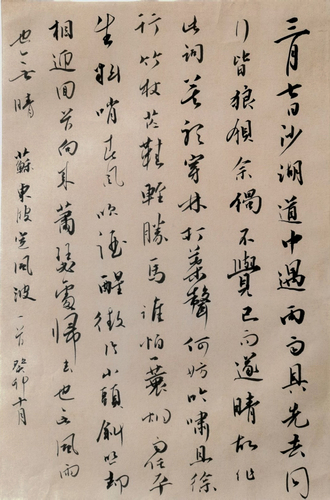 三月七日沙湖道中遇雨雨具先去同
行皆狼狽余獨不覺已而遂晴故作
此詞莫聽穿林打葉聲何妨吟嘯且徐
行竹杖芒鞋輕勝馬誰怕一蓑烟雨任平
生料峭春風吹酒醒微冷山頭斜照却
相迎回首向來蕭瑟處歸去也無風雨
也無晴 蘇東坡定風波一首 癸卯十月